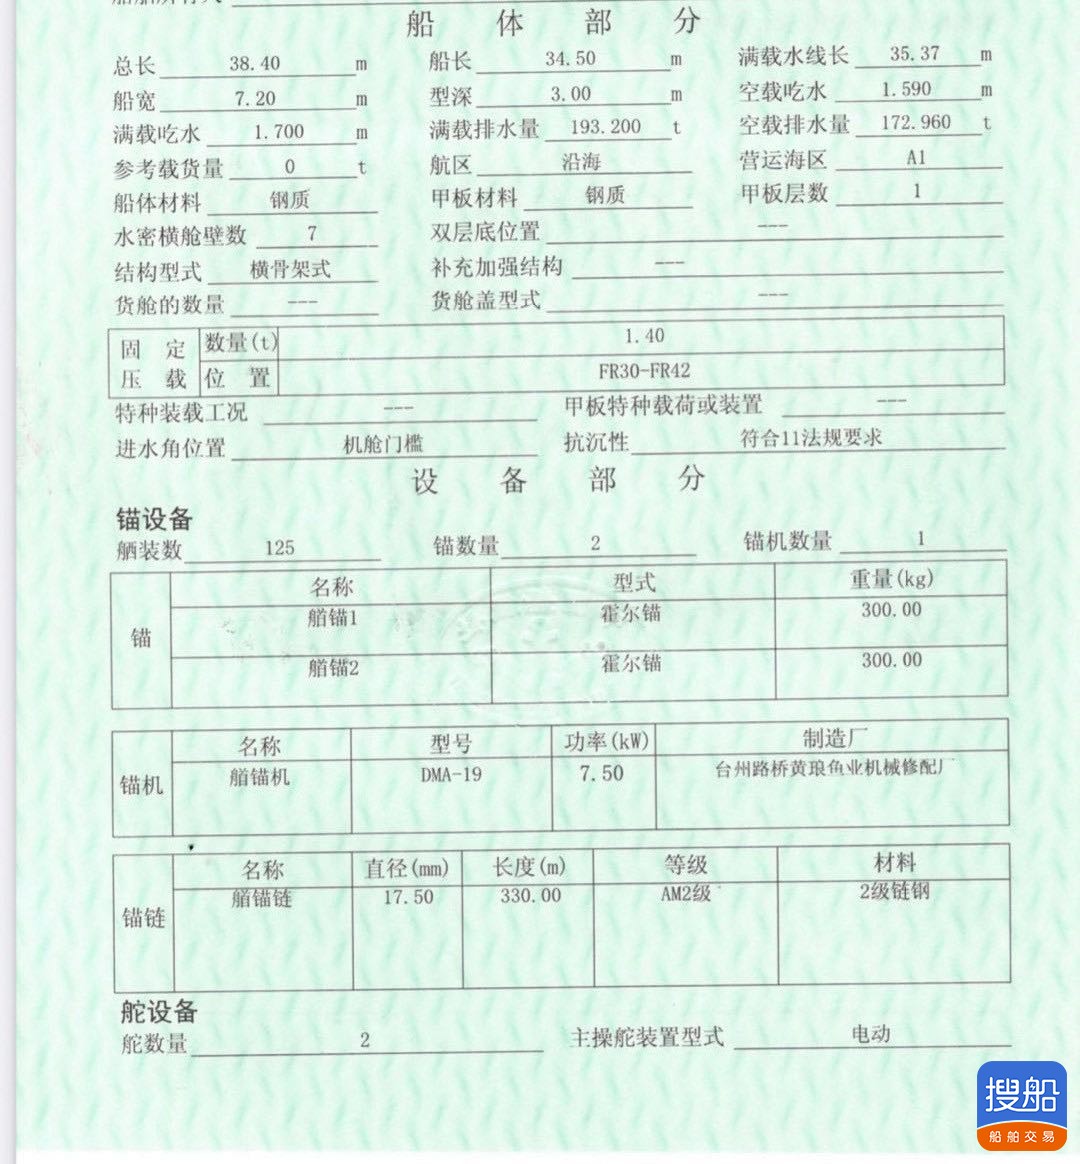 船体部分
总长 38.40 m 船长 34.50 m 满载水线长 35.37 m
船宽 7.20 m 型深 3.00 m 空载吃水 1.590 m
满载吃水 1.700 m 满载排水量 193.200 t 空载排水量 172.960 t
参考载货量 0 t 航区 沿海 营运海区 A1
船体材料 钢质 甲板材料 钢质 甲板层数 1
水密横舱壁数 7 双层底位置 ---
结构型式 横骨架式 补充加强结构 ---
货舱的数量 --- 货舱盖型式 ---
固定压载 数量(t) 1.40
位置 FR30-FR42
特种装载工况 --- 甲板特种载荷或装置 ---
进水角位置 机舱门槛 抗沉性 符合11法规要求
设备部分
锚设备
舾装数 125 锚数量 2 锚机数量 1
锚 名称 型式 重量(kg)
艏锚1 霍尔锚 300.00
艏锚2 霍尔锚 300.00
锚机 名称 型号 功率(kW) 制造厂
艏锚机 DMA-19 7.50 台州路桥黄琅鱼业机械修配厂
锚链 名称 直径(mm) 长度(m) 等级 材料
艏锚链 17.50 330.00 AM2级 2级链钢
舵设备
舵数量 2 主操舵装置型式 电动
搜船
船舶交易